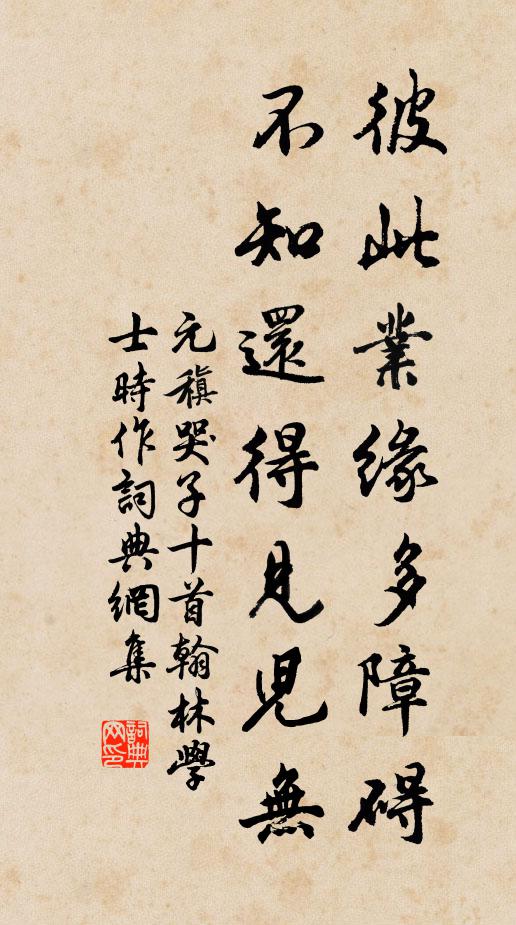 彼此業緣多障碍
不知還得見兒無
元稹哭子十首翰林學
士時作詞典網集
詞典
網印